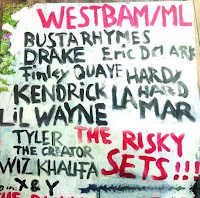 WESTBAM/ML
BUSTA RHYMES
DRAKE Eric D CLARK
Finley QUAYE HARD/
KENDRICK LAMAR HAID
LiL WAYNE
TYLER THE RISKY
THE CREATOR SETS!!!
WIZ KHALIFA
X & Y